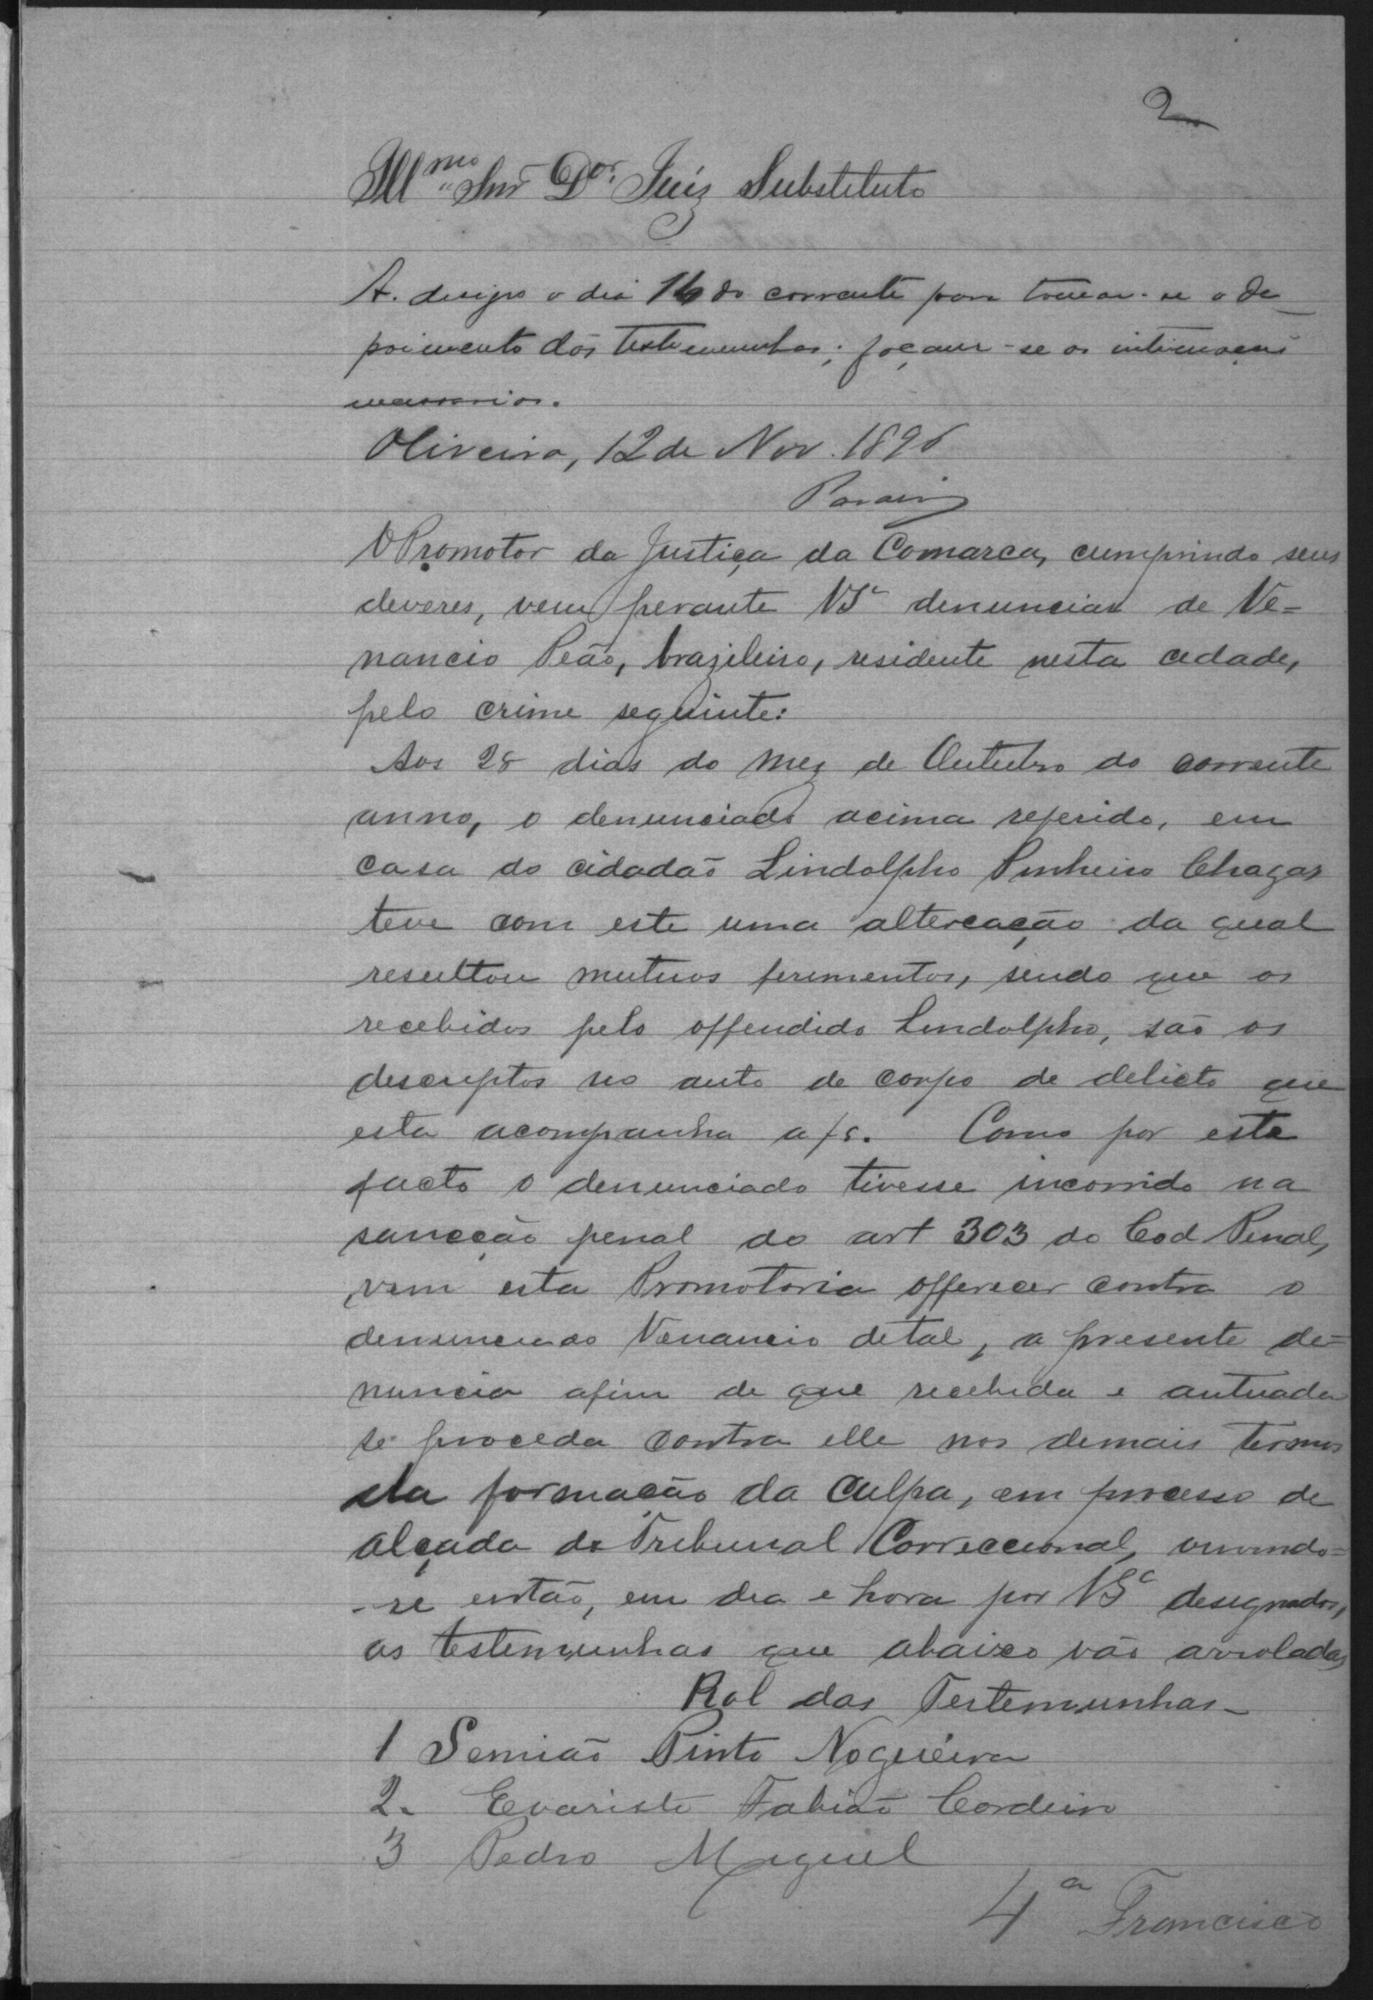 2
Illmo Snr Dor Juiz Substituto
A. designo o dia 16 do corrente para tomar-se o de
poimento das testemunhas; façam-se as intimações
necessarias.
Oliveira, 12 de Nov. 1896
O Promotor da Justiça da Comarca, cumprindo seus
deveres, vem perante VSa denunciar de Ve=
nancio Peão, brazileiro, residente nesta cidade,
pelo crime seguinte:
Aos 28 dias do mez de Outubro do corrente
anno, o denunciado acima referido, em
casa do cidadão Lindolpho Pinheiro Chagas
teve com este uma altercação da qual
resultou mutuos ferimentos, sendo que os
recebidos pelo offendido Lindolpho, são os
descriptos no auto de corpo de delicto que
esta acompanha a fs. Como por este
facto o denunciado tivesse incorrido na
sancção penal do art 303 do Cod Penal,
vem esta Promotoria offerecer contra o
denunciado Venancio de tal, a presente de=
nuncia afim de que recebida e autuada
se proceda contra elle nos demais termos
da formação da culpa, em processo de
alçada do Tribunal Correccional, ouvindo=
-se então, em dia e hora por VSa designados,
as testemunhas que abaixo vão arroladas
Rol das Testemunhas
1 Semião Pinto Nogueira
2. Evaristo Fabião Cordeiro
3 Pedro Miguel
4a Francisco